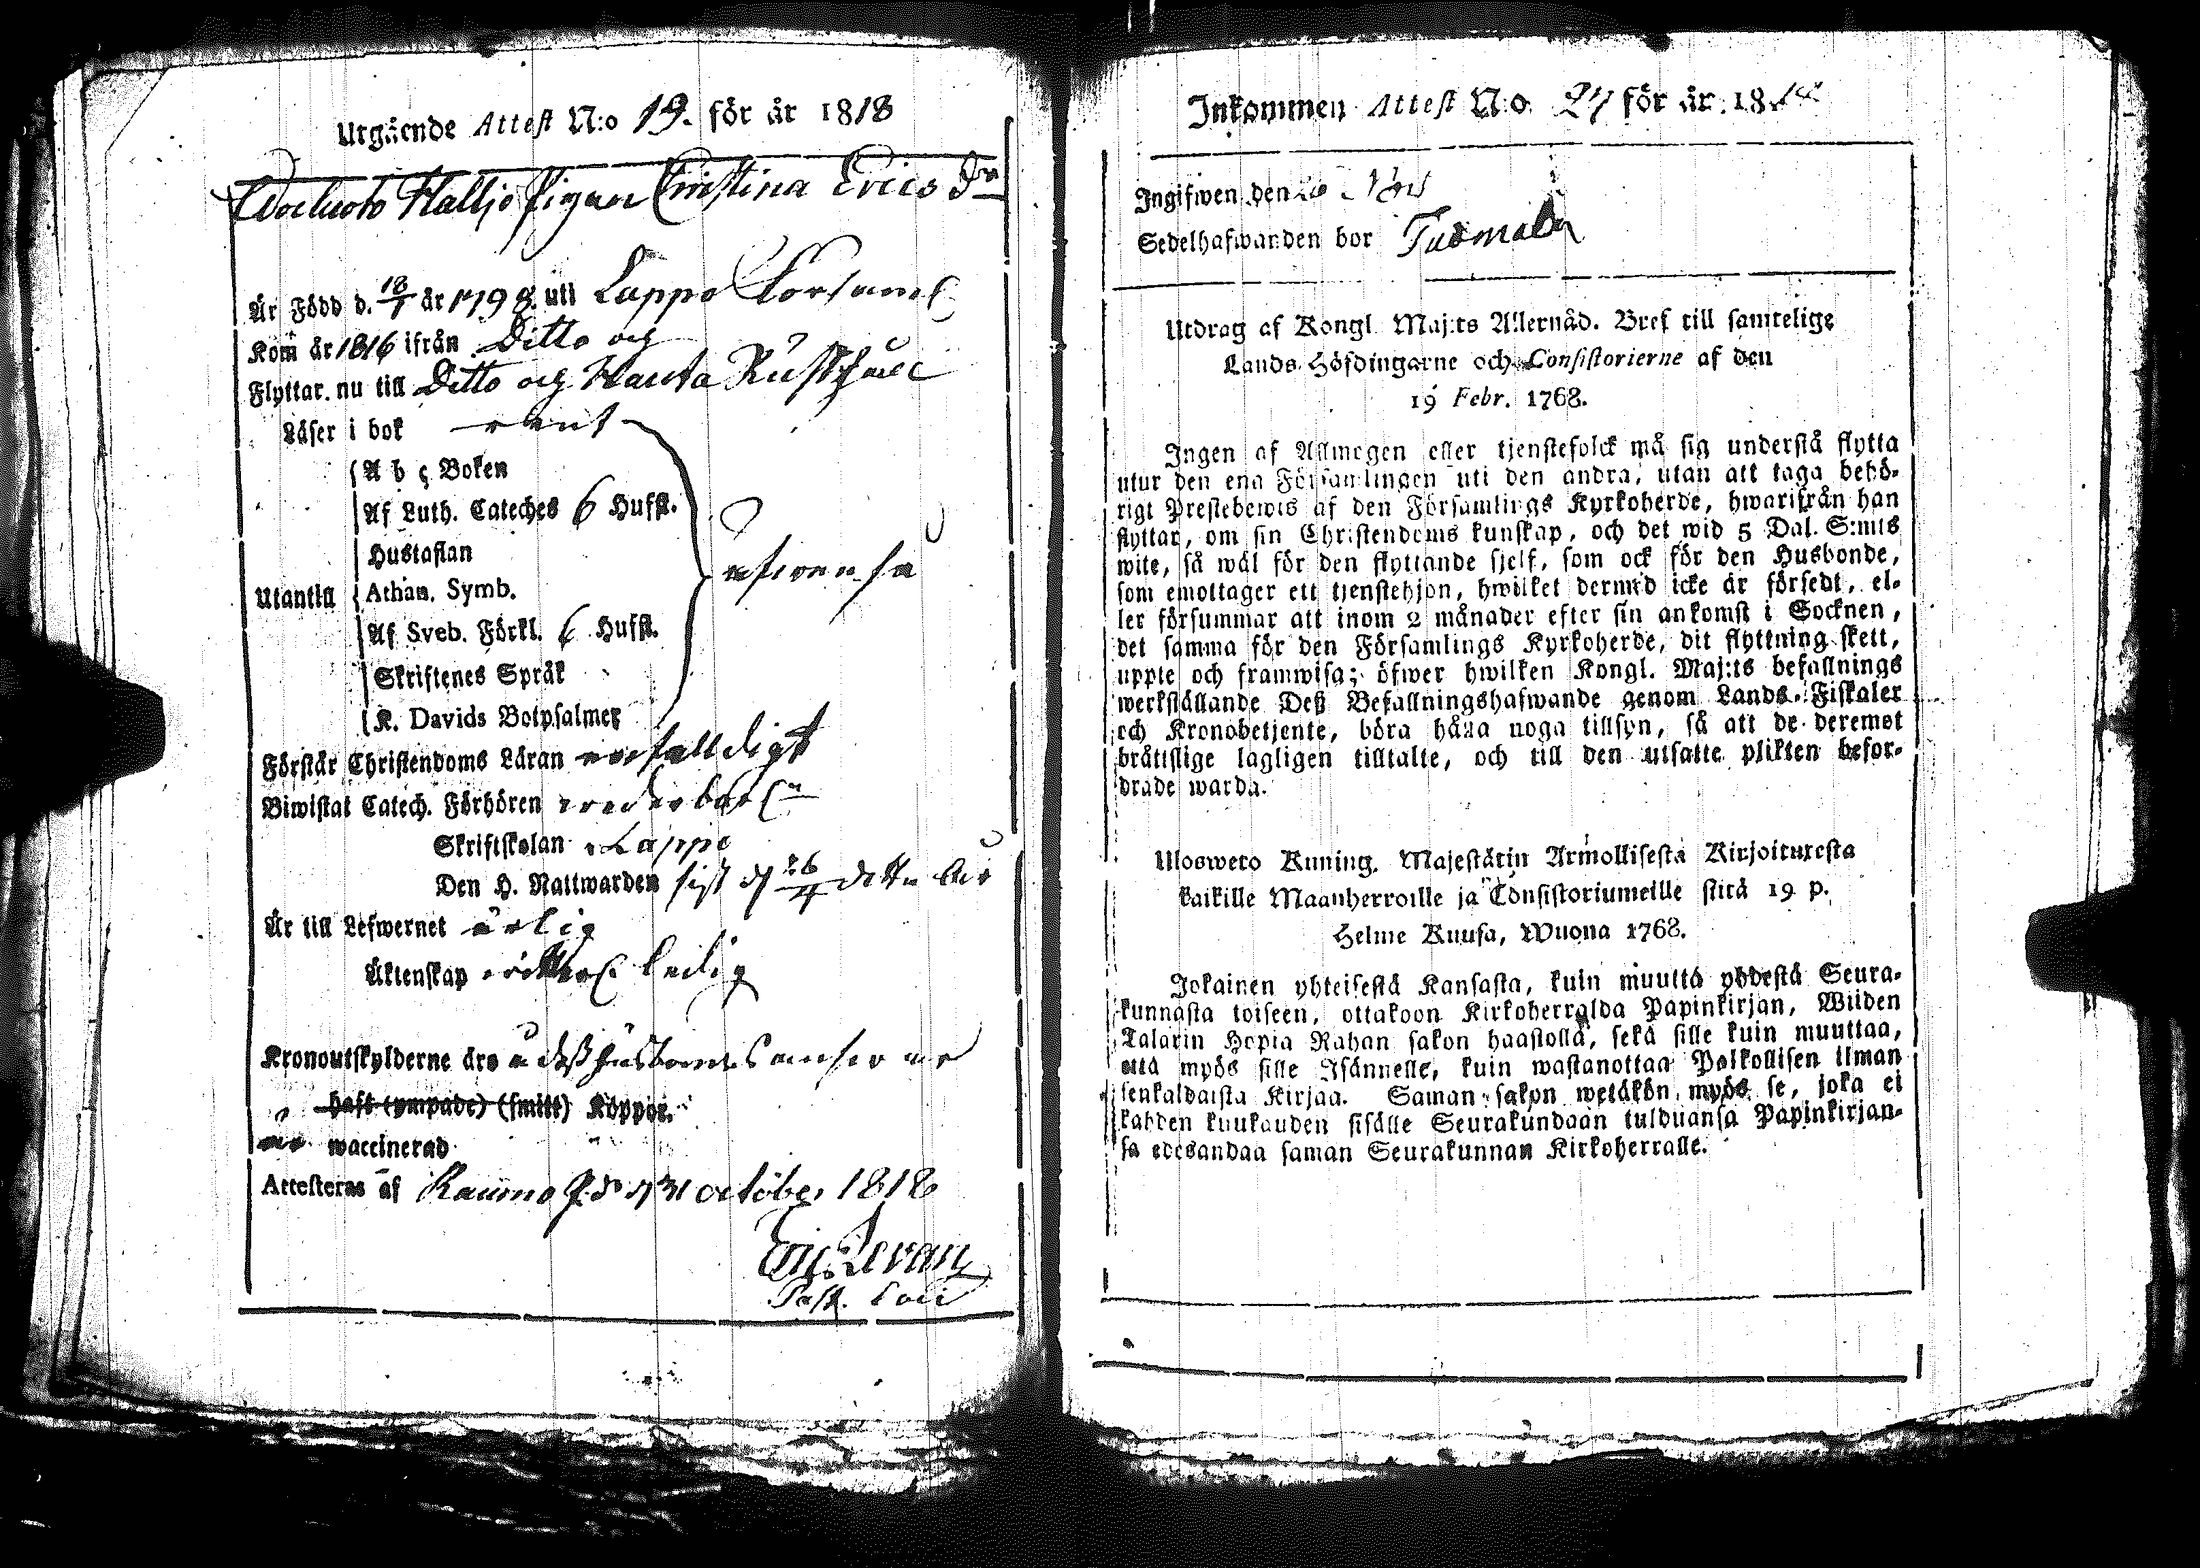 Utgående Attest N:o 19. för år 1818
Pigan Christina Erics Dr
Är Född d. 18/7 år 1798 uti Lappo Församl.
Kom år 1816 ifrån Ditto och
Flyttar nu till Ditto och Kauta Rusthåll
Läser i bok rent
A b c Boken
Af Luth. Cateches 6 Hufst.
Hustaflan
Utantill Athan. Symb.
Af Sveb. Förkl. 6 Hufst.
Skriftenes Språk
K. Davids Botpsalmer
Förstår Christendoms Läran enfalldigt
Biwistat Catech. Förhören
Skriftskolan Lappo
Den H. Nattwarden sist d 26/4 detta år
Är till Lefwernet ärlig
Äktenskap ledig
Kronoutskylderne äro
haft (ympade) (smitt) Koppor.
är waccinerad
Attesteras af Raumo d 31 october 1818
Eric Levan
Past. Loci
Inkommen Attest N:o 27 för år 1818
Ingifwen den Nov
Sedelhafwanden bor
Utdrag af Kongl. Maj:ts Allernåd. Bref till samtelige
Lands-Höfdingarne och Consistorierne af den
19 Febr. 1768.
Ingen af Allmogen eller tjenstefolck må sig understå flytta
utur den ena Församlingen uti den andra, utan att taga behö-
rigt Prestebewis af den Församlings Kyrkoherde, hwarifrån han
flyttar, om sin Christendoms kunskap, och det wid 5 Dal. S:mts
wite, så wäl för den flyttande sjelf, som ock för den Husbonde,
som emottager ett tjenstehjon, hwilket dermed icke är försedt, el-
ler försummar att inom 2 månader efter sin ankomst i Socknen,
det samma för den Församlings Kyrkoherde, dit flyttning skett,
uppte och framwisa; öfwer hwilken Kongl. Maj:ts befallnings
werkställande Deß Befallningshafwande genom Lands-Fiskaler
och Kronobetjente, böra hålla noga tillsyn, så att de deremot
bråtislige lagligen tilltalte, och till den utsatte plikten befor-
drade warda.
Uloswеto Kuning. Majestätin Armollisesta Kirjoituxesta
kaikille Maanherroille ja Consistoriumeille siitä 19 p.
Helme Kuusa, Wuona 1768.
Jokainen yhteisestä Kansasta, kuin muutta yhdestä Seura-
kunnasta toiseen, ottakoon Kirkoherralda Papinkirjan, Wiiden
Talarin Hopia Rahan sakon haastolla, sekä sille kuin muuttaa,
että myös sille Isännelle, kuin wastanottaa Palkollisen ilman
senkaldaista Kirjaa. Saman sakon wetäkön myös se, joka ei
kahden kuukauden sisälle Seurakundaan tulduansa Papinkirjan-
sa edesandaa saman Seurakunnan Kirkoherralle.